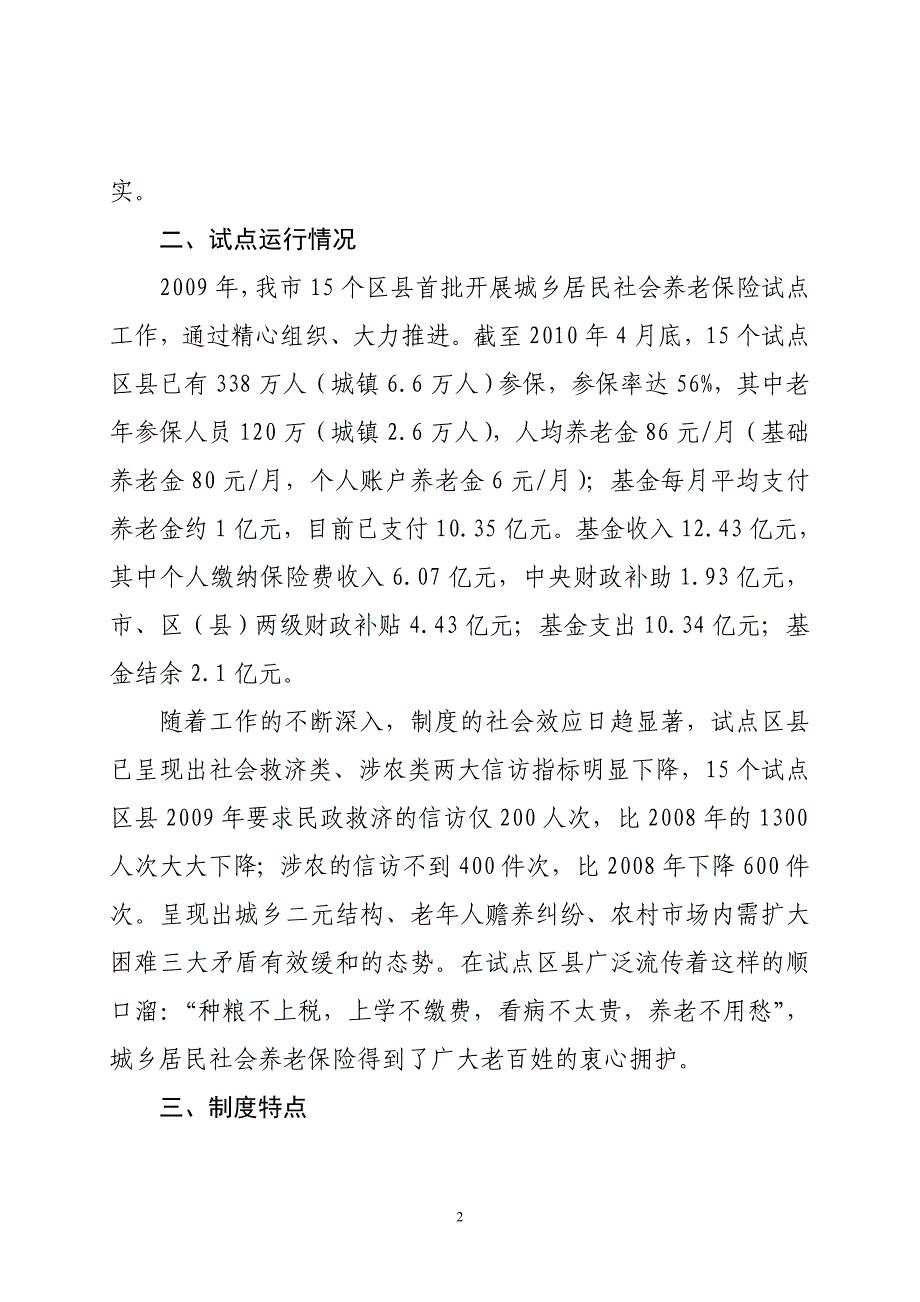 实。
二、试点运行情况
2009 年，我市 15 个区县首批开展城乡居民社会养老保险试点
工作，通过精心组织、大力推进。截至 2010 年 4 月底，15 个试点
区县已有 338 万人（城镇 6.6 万人）参保，参保率达 56%，其中老
年参保人员 120 万（城镇 2.6 万人），人均养老金 86 元/月（基础
养老金 80 元/月，个人账户养老金 6 元/月）；基金每月平均支付
养老金约 1 亿元，目前已支付 10.35 亿元。基金收入 12.43 亿元，
其中个人缴纳保险费收入 6.07 亿元，中央财政补助 1.93 亿元，
市、区（县）两级财政补贴 4.43 亿元；基金支出 10.34 亿元；基
金结余 2.1 亿元。
随着工作的不断深入，制度的社会效应日趋显著，试点区县
已呈现出社会救济类、涉农类两大信访指标明显下降，15 个试点
区县 2009 年要求民政救济的信访仅 200 人次，比 2008 年的 1300
人次大大下降；涉农的信访不到 400 件次，比 2008 年下降 600 件
次。呈现出城乡二元结构、老年人赡养纠纷、农村市场内需扩大
困难三大矛盾有效缓和的态势。在试点区县广泛流传着这样的顺
口溜：“种粮不上税，上学不缴费，看病不太贵，养老不用愁”，
城乡居民社会养老保险得到了广大老百姓的衷心拥护。
三、制度特点
2